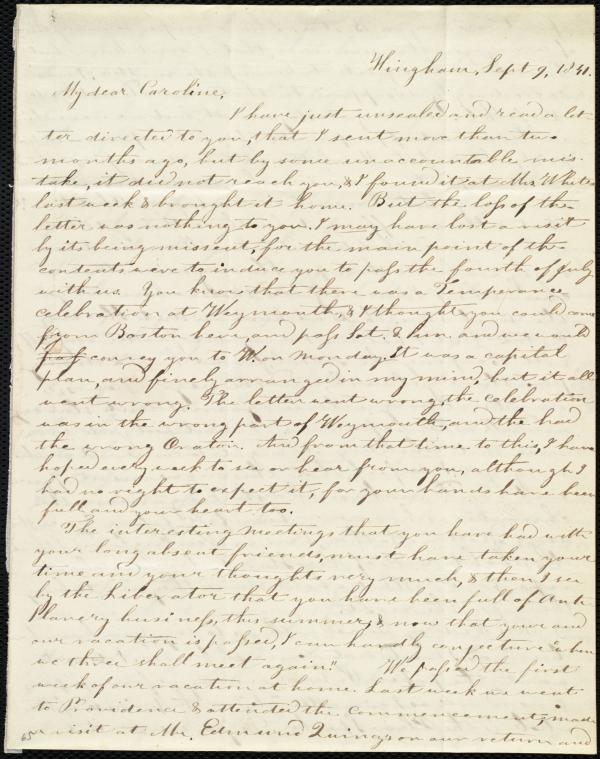 Hingham, Sept 9, 1841.
My dear Caroline,
I have just unsealed and read a let-
ter directed to you, that I sent more than two
months ago, but by some unaccountable mis-
take, it did not reach you, & I found it at Mrs White's
last week & brought it home. But the loss of the
letter was nothing to you, I may have lost a visit
by its being missent, for the main point of the
contents were to induce you to pass the fourth of July
with us. You know that there was a Temperance
celebration at Weymouth, & I thought you could come
from Boston here, and pass Sat. & Sun. and we could
pass convey you to W. on Monday. It was a capital
plan, and finely arranged in my mind, but it all
went wrong. The letter went wrong, the celebration
was in the wrong part of Weymouth, and the had
the wrong Orator. And from that time to this, I have
hoped every week to see or hear from you, although I
had no right to expect it, for your hands have been
full, and your heart too.
The interesting meetings that you have had with
your long absent friends, must have taken your
time and your thoughts very much, & then I see
by the Liberator that you have been full of Anti-
Slavery business, this summer, & now that your and
our vacation is passed, I can hardly conjecture "when
we three shall meet again." We passed the first
week of our vacation at home. Last week we went
to Providence & attended the commencement, made
a visit at Mr. Edmund Quincy's on our return and
65